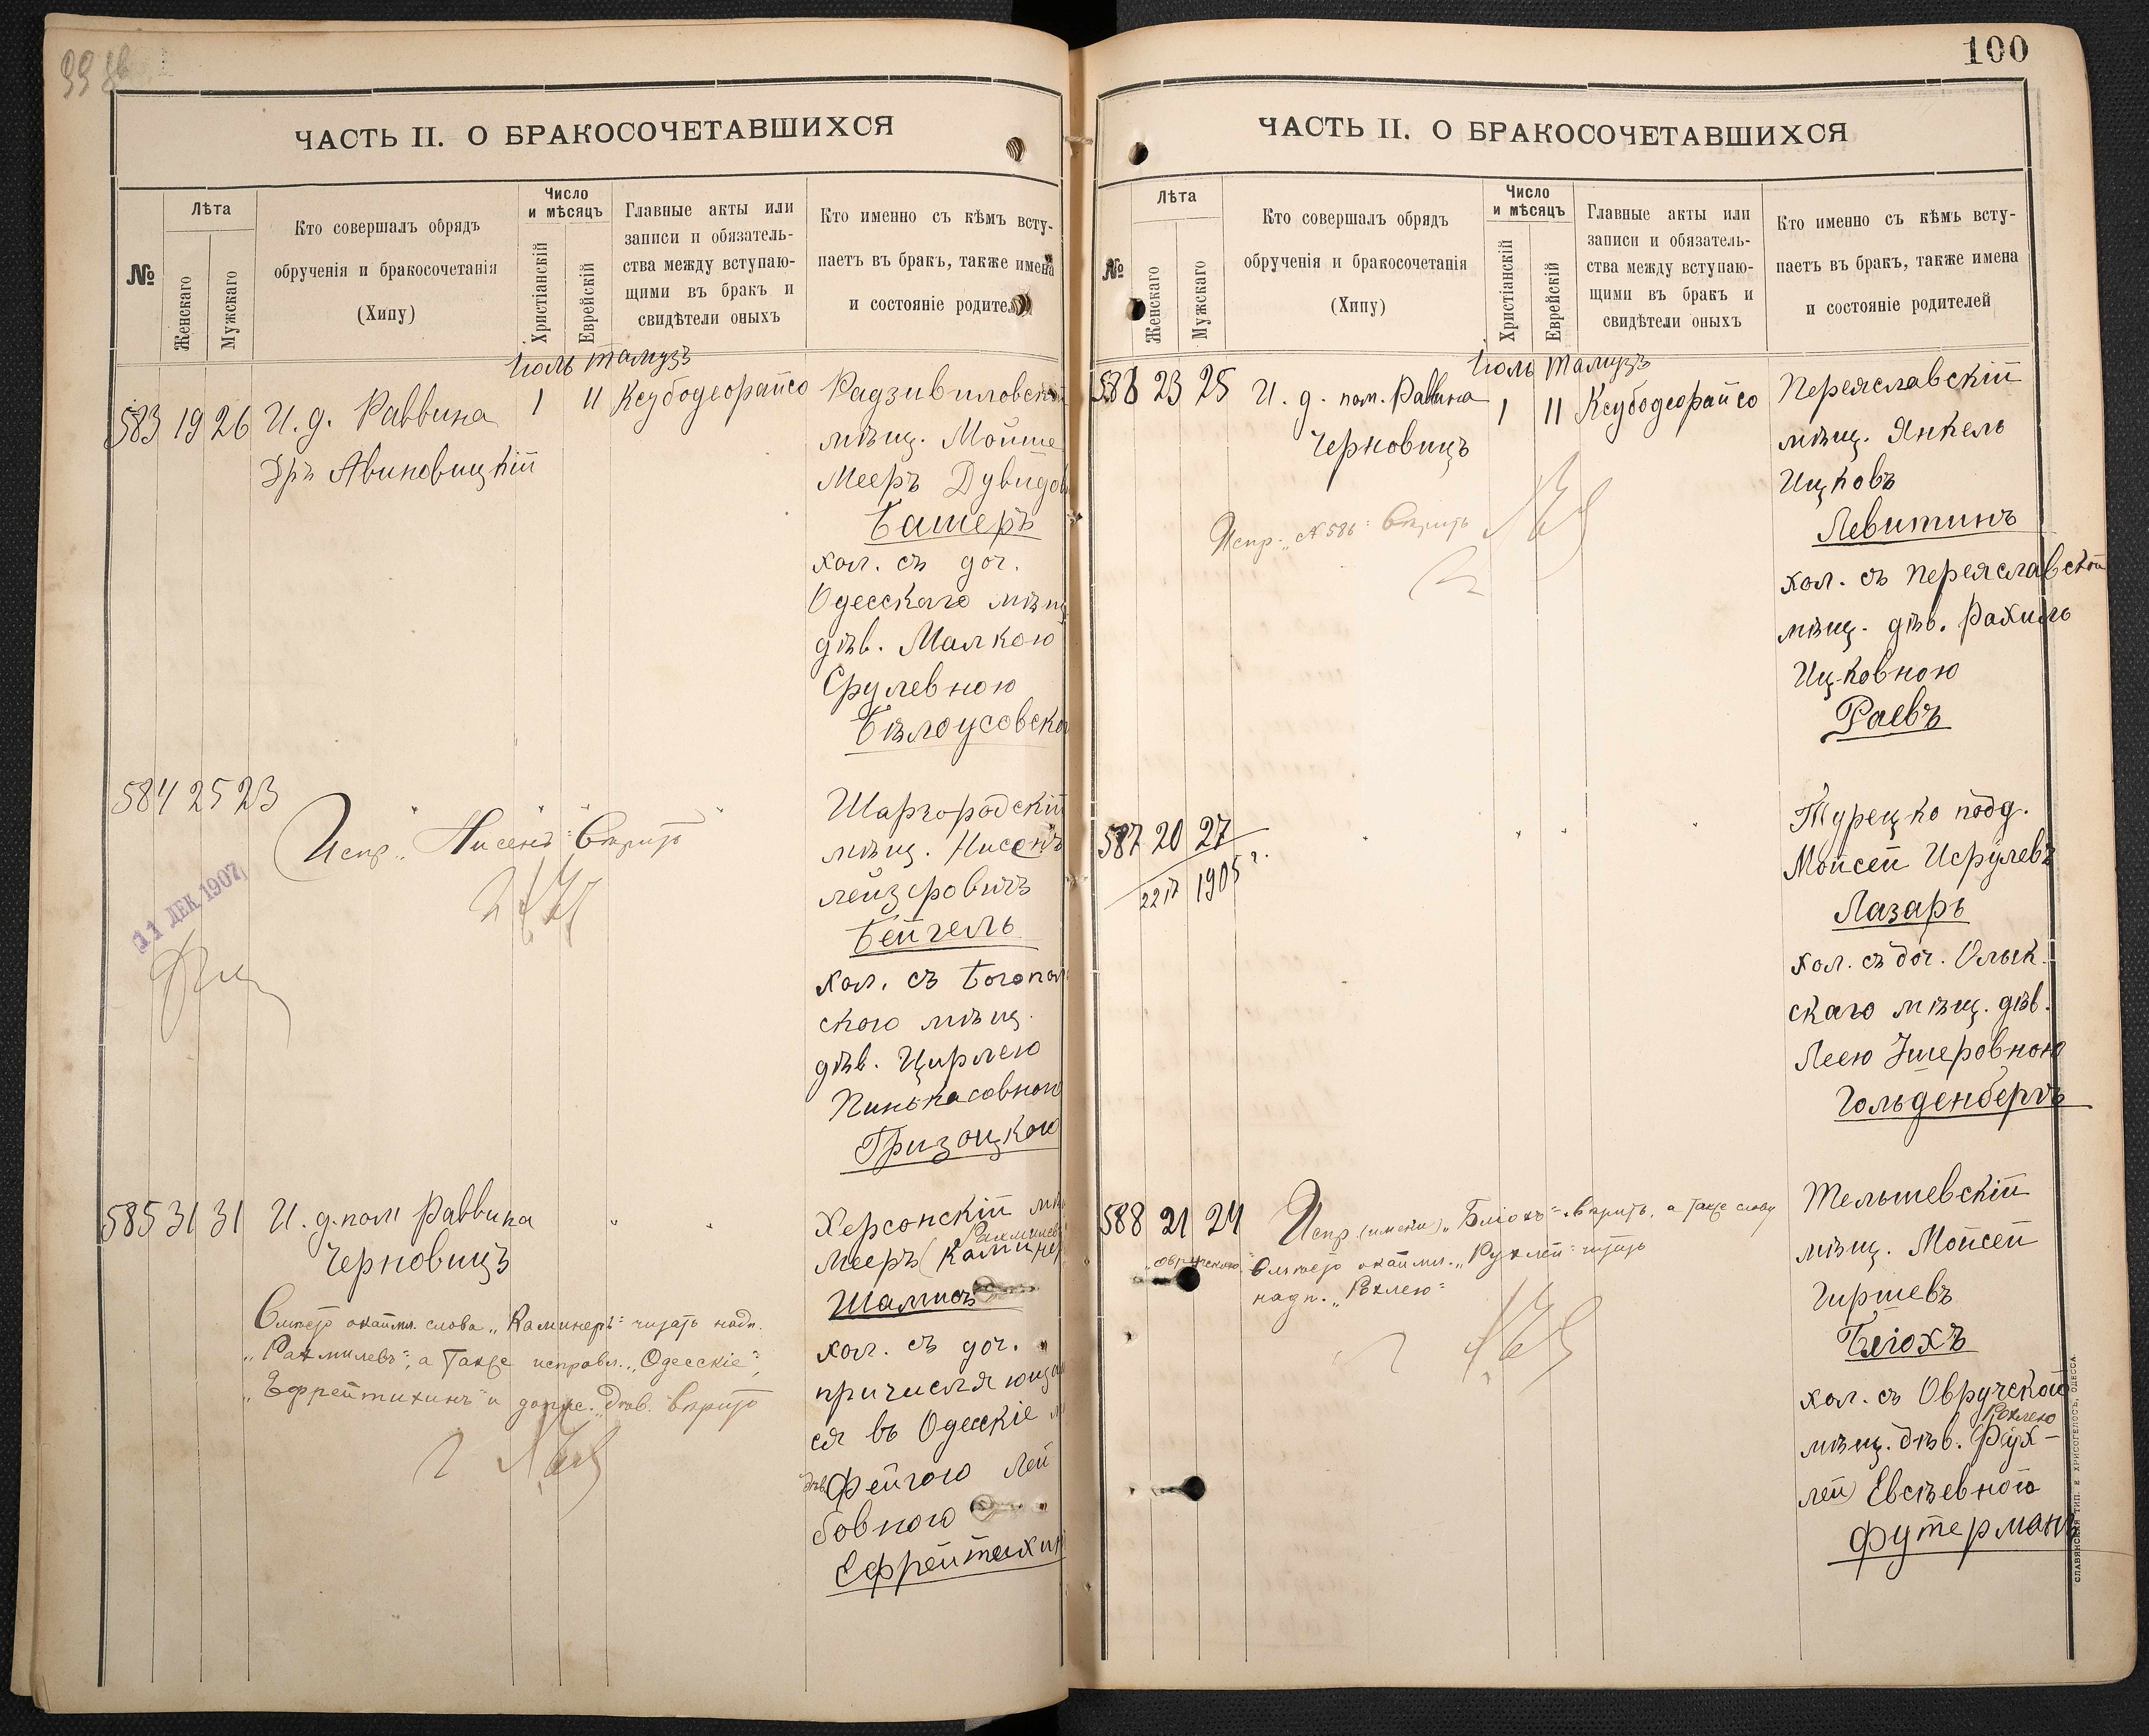 ЧАСТЬ II. О БРАКОСОЧЕТАВШИХСЯ
№
Лѣта
Женскаго
Мужскаго
Кто совершалъ обрядъ
обрученія и бракосочетанія
(Хипу)
Число
и мѣсяцъ
Христіанскій
Еврейскій
Главные акты или
записи и обязатель-
ства между вступаю-
щими въ бракъ и
свидѣтели оныхъ
Кто именно съ кѣмъ всту-
паетъ въ бракъ, также имена
и состояніе родителей
Іюль Тамузъ
583 19 26 И. д. Раввина 1 11 Ксубодеорайсо
Дръ Авиновицкій
Радзивиловскій
мѣщ. Мойше
Мееръ Дувидов
Башеръ
хол. съ доч.
Одесскаго мѣщ
дѣв. Малкою
Срулевною
Бѣлоусовско
584 25 23
Испр. „Нисенъ“ вѣрить
11 ДЕК 1907
Шаргородскій
мѣщ. Нисенъ
Лейзеровичъ
Бейгель
хол. съ Богопол
скою мѣщ.
дѣв. Цирлею
Пинькасовною
Гризоцкою
585 31 31 И. д. пом Раввина
Черновицъ
Вмѣсто окайм. слова „Каминеръ“ читать надп.
„Рахмилевъ“, а также исправл. „Одесскіе“,
„Ефрейтихинъ“ и допис. „дѣв.“ вѣрить
Херсонскій мѣ
Рахмилевъ
Мееръ (Каминер
Шамисъ
хол. съ доч.
причисляюща
ся въ Одесскіе м
дѣв. Фейгою Лей
бовною
Ефрейтихин
100
ЧАСТЬ II. О БРАКОСОЧЕТАВШИХСЯ
№
Лѣта
Женскаго
Мужскаго
Кто совершалъ обрядъ
обрученія и бракосочетанія
(Хипу)
Число
и мѣсяцъ
Христіанскій
Еврейскій
Главные акты или
записи и обязатель-
ства между вступаю-
щими въ бракъ и
свидѣтели оныхъ
Кто именно съ кѣмъ всту-
паетъ въ бракъ, также имена
и состояніе родителей
Іюль Тамузъ
586 23 25 И. д. пом. Раввина 1 11 Ксубодеорайсо
Черновицъ
Испр. „№ 586“ вѣрить
Переяславскій
мѣщ. Янкель
Ицковъ
Левитинъ
хол. съ Переяславской
мѣщ. дѣв. Рахиль
Ицковною
Раевъ
587 20 27
1905 г.
Турецко подд.
Мойсей Исрулевъ
Лазаръ
хол. съ доч. Олык
скаго мѣщ. дѣв.
Леею Эшеровною
Гольденбергъ
588 21 24
Испр. (имени) „Бліохъ“ вѣрить, а также слову
„Овручскою“ Вмѣсто окайм. „Рухлей“ читать
надп. „Рохлею“
Тельшевскій
мѣщ. Мойсей
Гиршевъ
Бліохъ
хол. съ Овручскою
Рохлею
мѣщ. дѣв. Рух-
лей Евсѣевною
Футерманъ
СЛАВЯНСКАЯ ТИП. Е ХРИСОГЕЛОСЪ, ОДЕССА